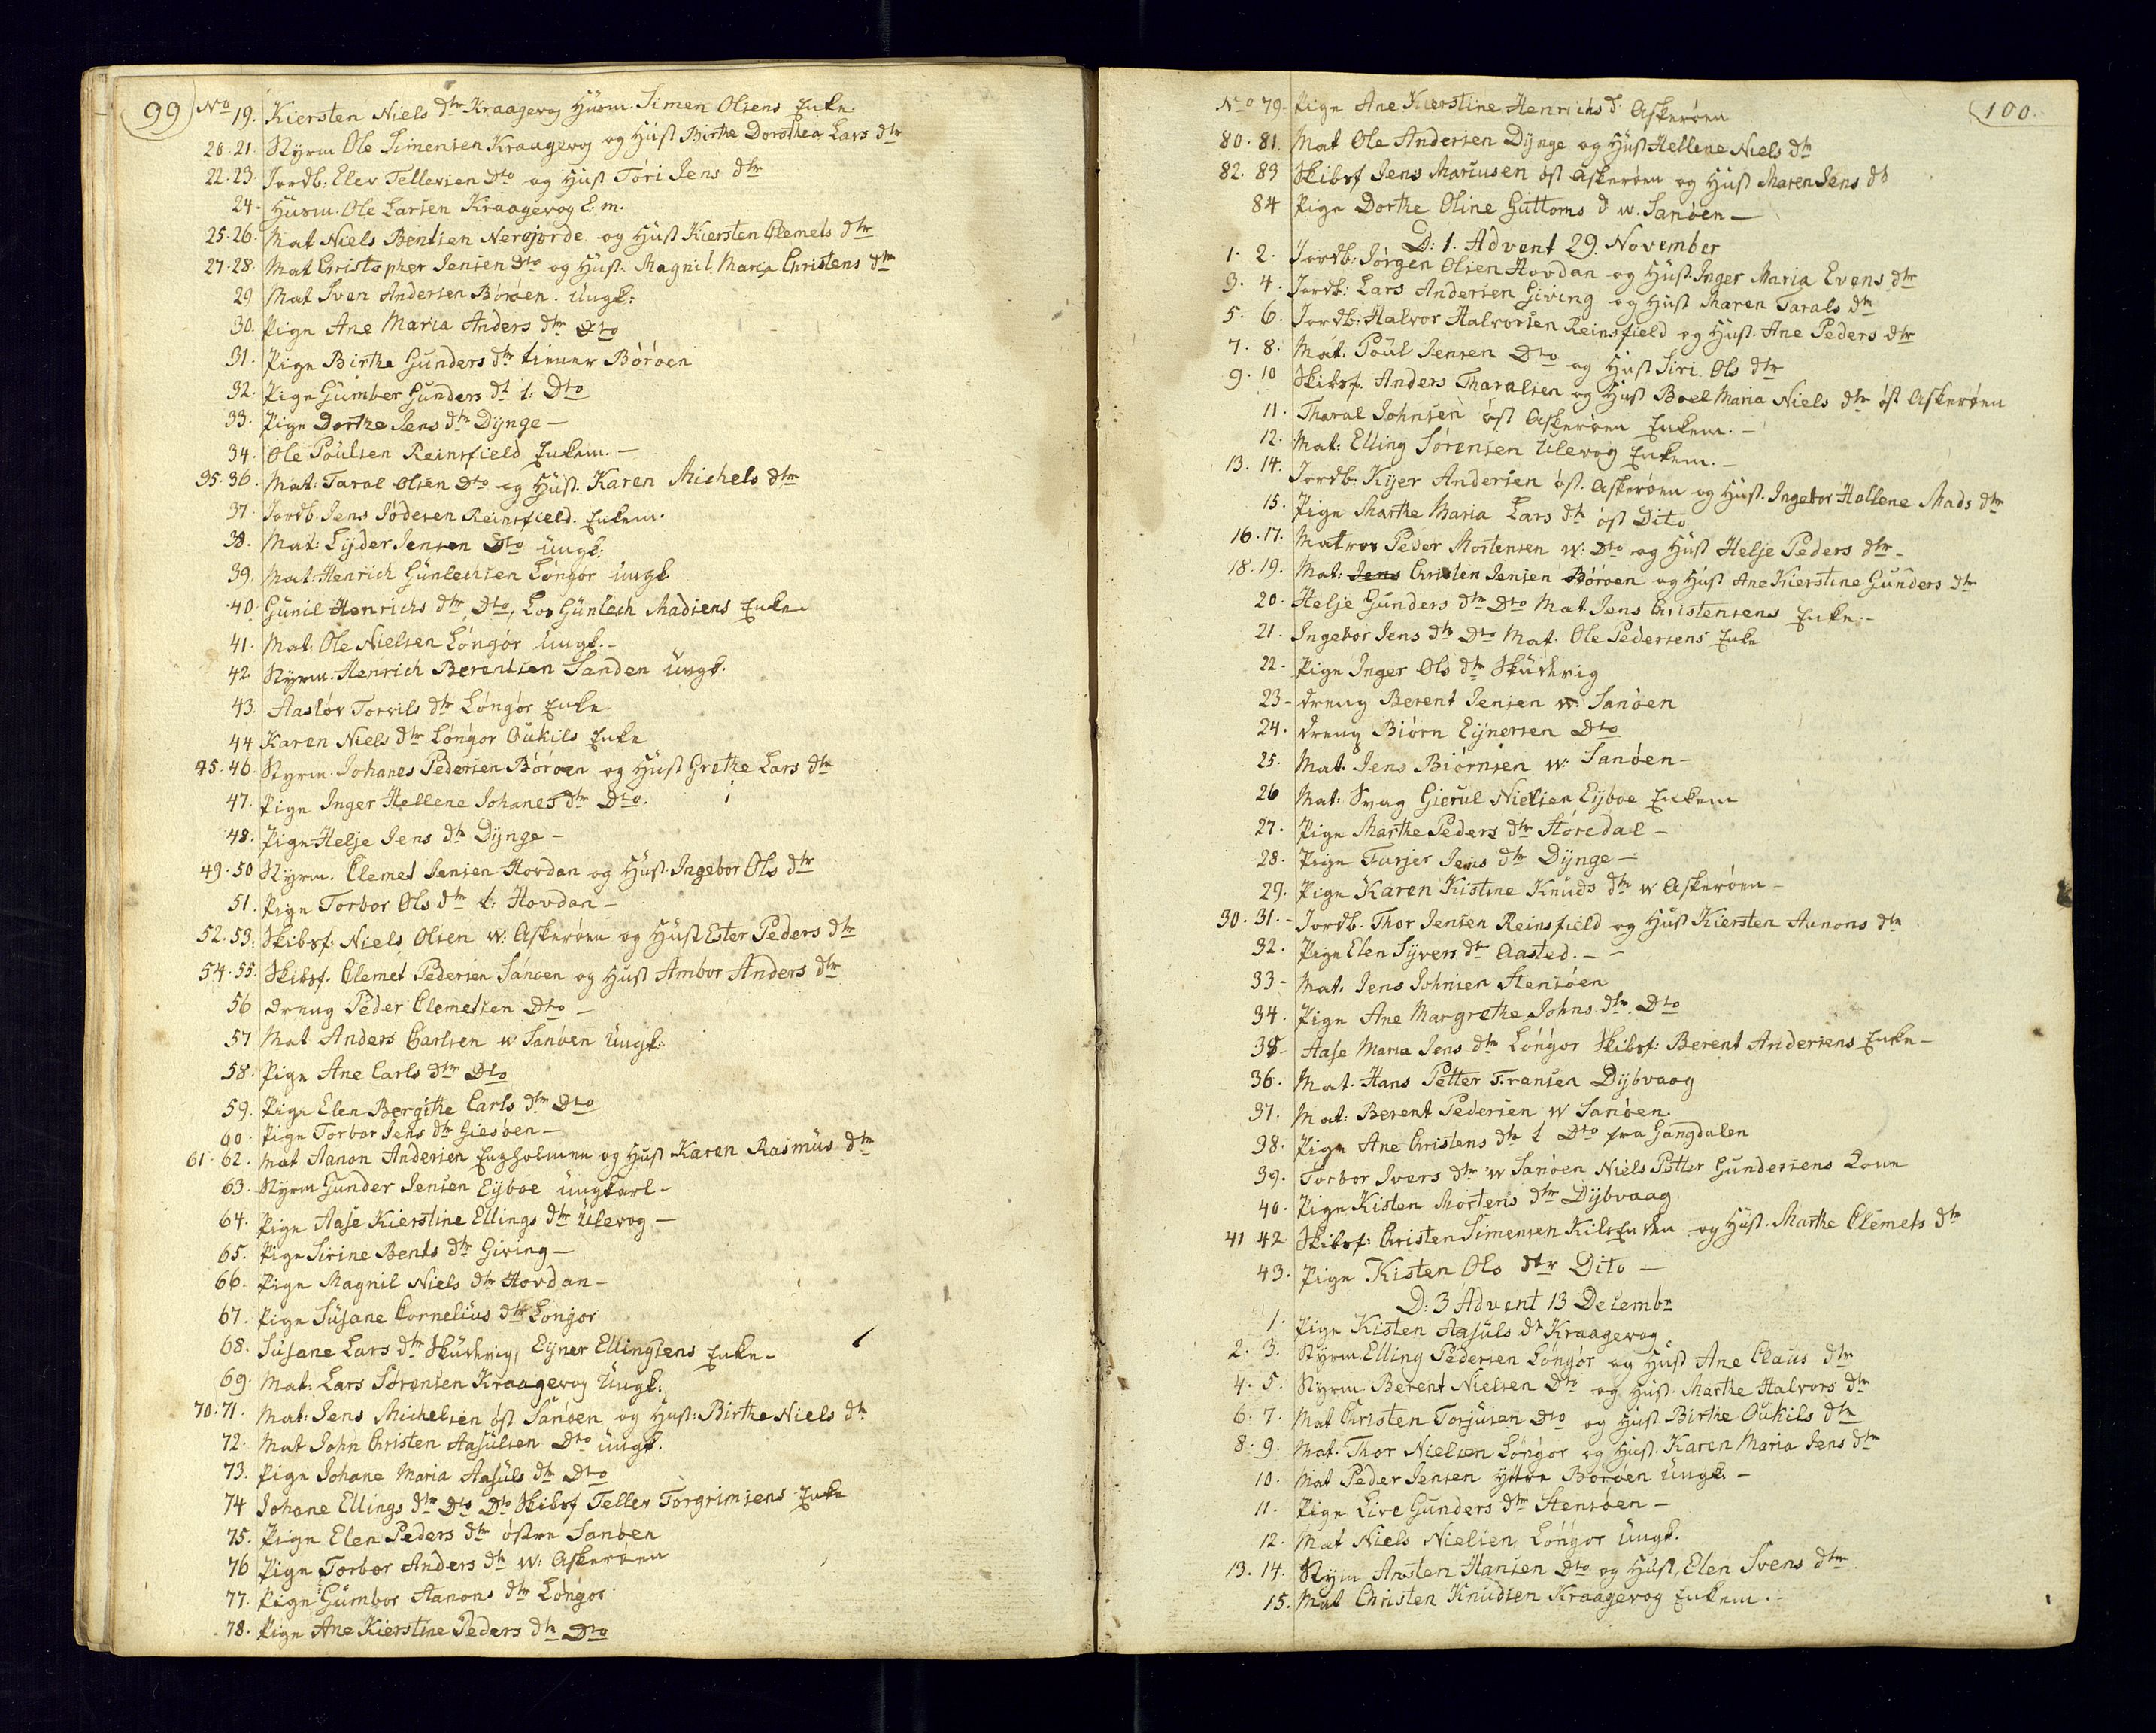 99
No 19. Kiersten Niels dtr Kraagevog Husm. Simen Olsens Enke
20. 21. Styrm Ole Simensen Kraagevog og Hust Birthe Dorothea Lars dtr
22. 23. Jordb: Elev Tellevsen Dto og Hust Tóri Jens dtr
24. Husm. Ole Larsen Kraagevog E: m.
25. 26. Mat Niels Bentsen Nergjorde og Hust Kiersten Clemets dtr
27. 28. Mat Christopher Jensen Dto og Hust. Magnil Maria Christens dtr
29 Mat Sven Andersen Bóróen. Ungk:
30. Pige Ane Maria Anders dtr Dto
31. Pige Birthe Gunders dtr tiener Bóróen
32. Pige Gumber Gunders dt t: Dto
33. Pige Dorthe Jens dtr Dynge —
34. Ole Poulsen Reinsfield Enkem. —
35. 36. Mat: Taral Olsen Dto og Hust. Karen Michels dtr
37. Jordb. Jens Jodesen Reinsfield. Enkem.
38. Mat: Lyder Jensen Dto ungk:
39. Mat: Henrich Gunlechsen Lóngór ungk
40. Gunil Henrichs dtr Dto, Los Gunlech Madsens Enke
41. Mat: Ole Nielsen Lóngór Ungk. -
42. Styrm. Henrich Berentsen Sanden Ungk.
43. Aasløv Torvils dtr Lóngór Enke
44 Karen Niels dtr Lóngór Oukils Enke
45. 46. Styrm. Johanes Pedersen Bóróen og Hust Grethe Lars dtr
47. Pige Inger Hellene Johanes dtr Dto.
48. Pige Helje Jens dtr Dynge —
49. 50 Styrm. Clemet Jensen Hovdan og Hust. Ingebor Ols dtr
51. Pige Torbor Ols dtr t: Hovdan —
52. 53. Skibsf: Niels Olsen w: Askeróen og Hust Ester Peders dtr
54. 55. Skibsf. Clemet Pedersen Sanóen og Hust Ambor Anders dtr
56 Dreng Peder Clemetsen Dto —
57 Mat Anders Carlsen w Sanóen Ungk:
58. Pige Ane Carls dtr Dto
59. Pige Elen Bergithe Carls dtr Dto
60. Pige Torbor Jens dtr Giesóen —
61. 62. Mat Aanon Andersen Engholmen og Hust Karen Rasmus dtr
63. Styrm Gunder Jensen Eyboe ungkarl -
64. Pige Aase Kierstine Ellings dtr Ulevog —
65. Pige Sirine Bents dtr Giving —
66. Pige Magnil Niels dtr Hovdan -
67. Pige Susane Cornelius dtr Longor
68. Susane Lars dtr Skuthvig, Eyner Ellingsens Enke -
69. Mat: Lars Sórensen Kraagevog Ungk:
70. 71. Mat: Jens Michelsen óst Sanóen og Hust: Birthe Niels dtr
72. Mat John Christen Aasulsen Dto ungk.
73. Pige Johane Maria Aasuls dtr Dto
74 Johane Ellings dtr Dto Dto Skibsf Tellev Torgrimsens Enke
75. Pige Elen Peders dtr óstre Sanóen
76 Pige Torbor Anders dtr w: Askeróen
77. Pige Gumbor Aanons dtr Lóngór
78. Pige Ane Kierstine Peders dtr Dto
100.
No 79. Pige Ane Kierstine Henrichs d. Askeróen
80. 81. Mat Ole Andersen Dynge og Hust Hellene Niels dtr
82. 83 Skibsf Jens Mariusen óst Askeróen og Hust Maren Jens dt
84 Pige Dorthe Oline Guttoms d w. Sanóen —
D: 1. Advent 29. November
1. 2. Jordb: Jórgen Olsen Hovdan og Hust. Inger Maria Evens dtr
3. 4. Jordb: Lars Andersen Giving og Hust Maren Tarals dtr
5. 6. Jordb: Halvor Halvorsen Reinsfield og Hust. Ane Peders dtr
7. 8. Mat. Poul Jensen Dto og Hust Siri Ols dtr
9. 10 Skibsf. Anders Tharalsen og Hust Boel Maria Niels dtr óst Askeróen
11. Tharal Johnsen óst Askeróen Enkem. —
12. Mat: Elling Sórensen Ulevog Enkem. —
13. 14. Jordb: Kyer Andersen óst. Askeróen og Hust. Ingebor Hellene Mads dtr
15. Pige Marthe Maria Lars dtr óst Dito
16. 17. Matros Peder Mortensen w: Dto og Hust Helje Peders dtr -
18. 19. Mat: Jens Christen Jensen Bóróen og Hust Ane Kierstine Gunders dtr
20. Helje Gunders dtr Dto Mat Jens Christensens Enke: -
21. Ingebor Jens dtr Dto Mat. Ole Pedersens Enke
22. Pige Inger Ols dtr Skuthvig
23 - Dreng Berent Jensen w. Sanóen
24. Dreng Biórn Eynersen Dto
25. Mat. Jens Biórnsen w: Sanóen -
26 Mat: Svag Gierul Nielsen Eyboe Enkem
27. Pige Marthe Peders dtr Stóredal -
28. Pige Turjer Jens dtr Dynge —
29. Pige Karen Kistine Knuds dtr w Askeróen -
30. 31. - Jordb. Thor Jensen Reinsfield og Hust Kiersten Aanons dtr
32. Pige Elen Syvers dtr Aasted. - -
33 - Mat. Jens Johnsen Stensóen
34. Pige Ane Margrethe Johns dtr Dto
35 - Aase Maria Jens dtr Lóngór Skibsf: Berent Andersens Enke -
36. Mat. Hans Petter Fransen Dybvaag
37. Mat: Berent Pedersen w Sanóen
38. Pige Ane Christens dtr t Dto fra Gangdalen
39. Torbor Ivers dtr w Sanóen Niels Petter Gundersens Kone
40. Pige Kisten Mortens dtr Dybvaag
41 42 Skibsf: Christen Simensen Kilsenden og Hust. Marthe Clemets dtr
43. Pige Kisten Ols dtr Dito —
D: 3 Advent 13 Decembr
1. Pige Kisten Aasuls dtr Kraagevog
2. 3. Styrm. Elling Pedersen Lóngór og Hust Ane Claus dtr
4. 5. Styrm. Berent Nielsen Dto og Hust. Marthe Halvors dtr
6. 7. Mat Christen Torjusen Dto og Hust. Birthe Oukils dtr
8. 9. Mat. Thor Nielsen Lóngór og Hust. Karen Maria Jens dtr
10. Mat Peder Jensen yttre Bóróen Ungk. -
11. Pige Live Gunders dtr Stensóen —
12. Mat Niels Nielsen Lóngór Ungk.
13. 14. Styrm Ansten Hansen Dto og Hust, Elen Svens dtr
15. Mat Christen Knudsen Kraagevog Enkem. -